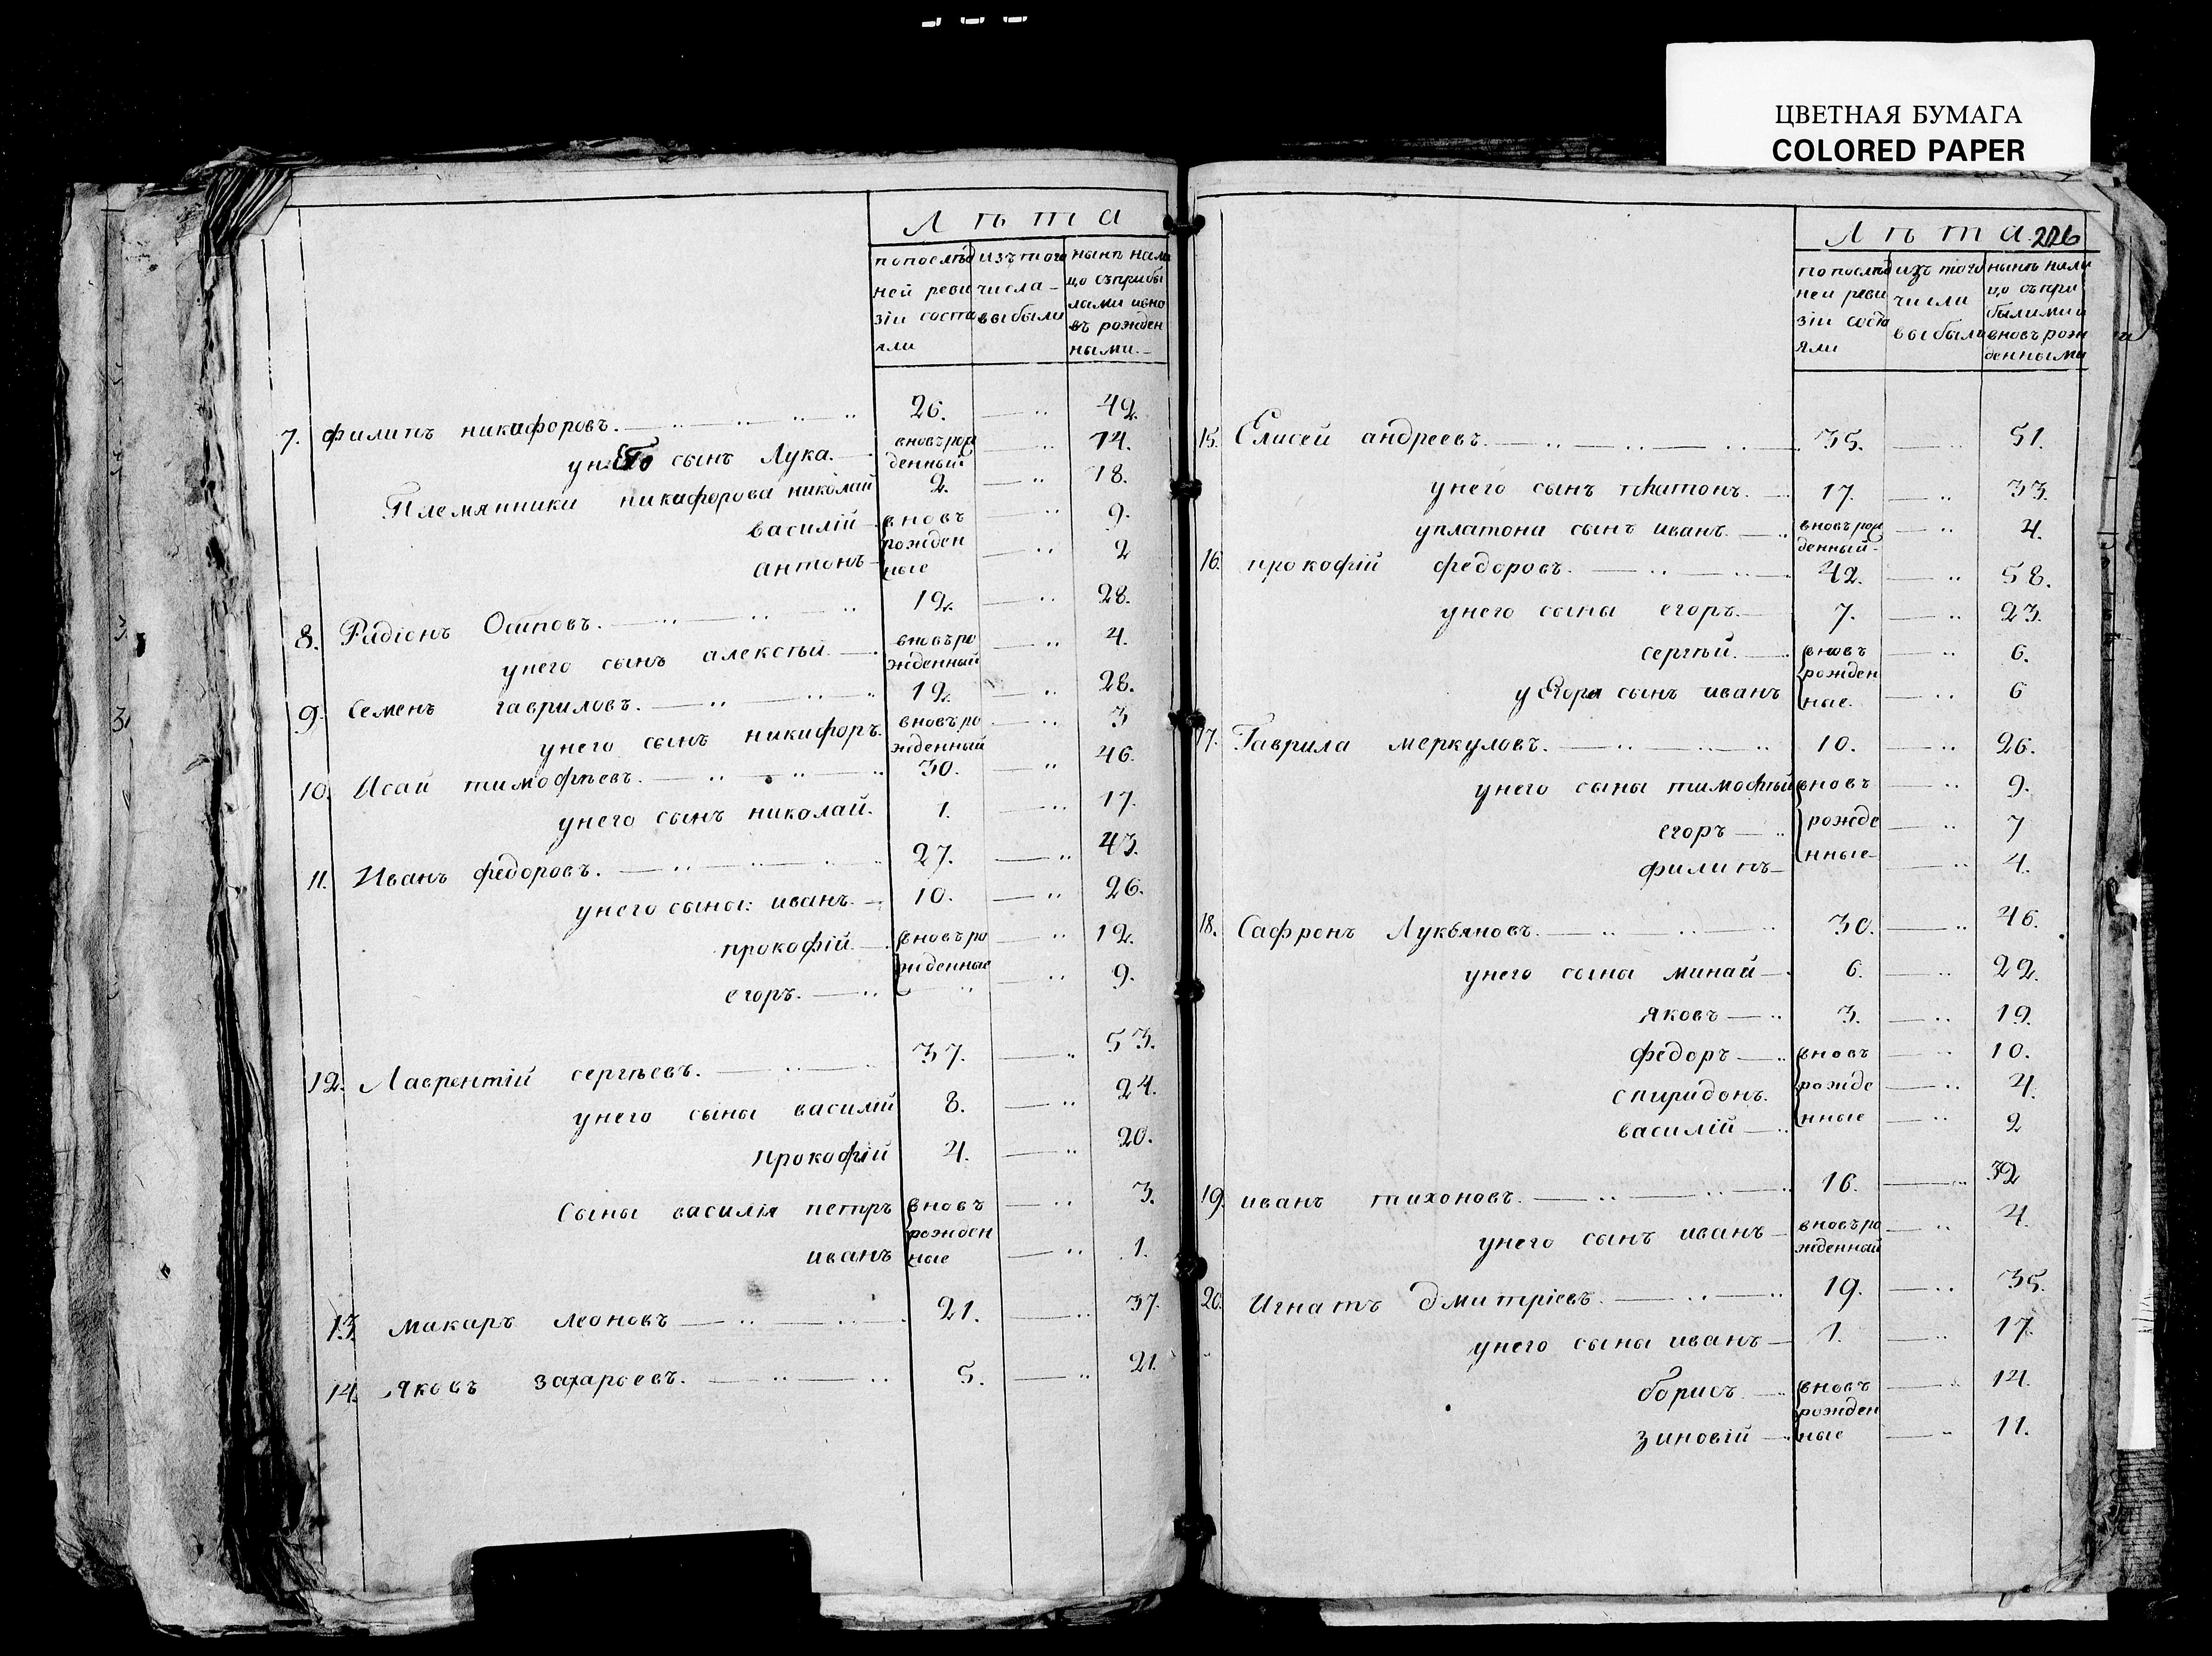 ЦВЕТНАЯ БУМАГА
COLORED PAPER
Лѣта
попослѣд изъ того нынѣ нали
ней реви числа цо съприбы
зіи состо выбыли лыми ивно
яли въ рожден
ными.
7. Филипъ никифоровъ. 26. 42.
унЕго сынъ Лука. вновърож 14.
денный
Племянники никифорова николай 2. 18.
василій вновъ 9.
рожден
антонъ ные 2
8. Радіонъ Осиповъ. 12. 28.
унего сынъ алексѣй. вновъро 4.
жденный
9. Семенъ гавриловъ. 12. 28.
унего сынъ никифоръ. вновъро 3
жденный
10. Исай тимофѣевъ. 30. 46.
унего сынъ николай. 1. 17.
11. Иванъ федоровъ. 27. 43.
унего сыны: иванъ. 10. 26.
прокофій вновъро 12.
жденные
егоръ. 9.
12. Лаврентій сергѣевъ. 37. 53.
унего сыны василій 8. 24.
прокофій 4. 20.
Сыны василія петръ вновъ 3.
рожден
иванъ ные 1.
13. макаръ леоновъ 21. 37.
14. Яковъ захаровъ. 5. 21.
Лѣта 226
попослѣд изъ того нынѣ нали
ней реви числа цо съпри
зіи состо выбыли былими и
яли вновъ рож
денными
15. Елисей андреевъ. 35. 51.
унего сынъ платонъ. 17. 33.
уплатона сынъ иванъ. вновърож 4.
денный
16. прокофій федоровъ. 42. 58.
унего сыны егоръ. 7. 23.
сергѣй. вновъ 6.
рожден
уЕгора сынъ иванъ ные. 6
17. Гаврила меркуловъ. 10. 26.
унего сыны тимофѣй вновъ 9.
егоръ рожде 7
филипъ нные 4.
18. Сафронъ Лукьяновъ. 30. 46.
унего сыны минай 6. 22.
яковъ 3. 19.
федоръ вновъ 10.
спиридонъ. рожде 4.
василій нные 2
19. иванъ тихоновъ. 16. 32
унего сынъ иванъ вновъро 4.
жденный
20. Игнатъ дмитріевъ. 19. 35.
унего сыны иванъ 1. 17.
борисъ. вновъ 14.
рожден
зиновій ные 11.